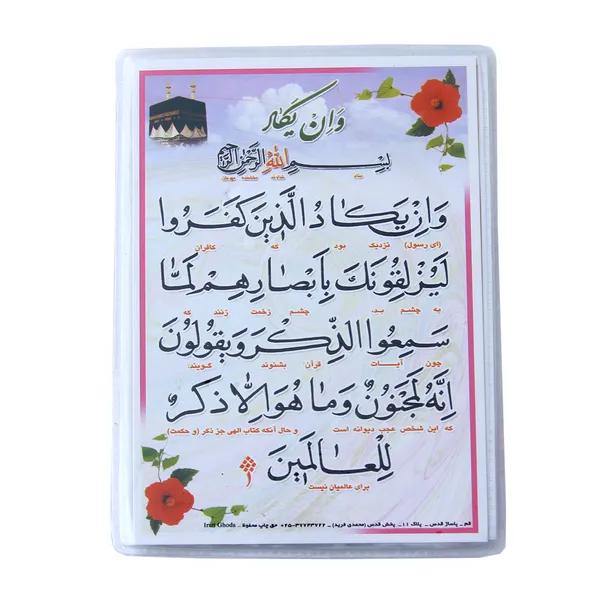 وَاِنْ یَکٰادُ
بِسْمِ اللهِ الرَّحْمٰنِ الرَّحیمِ
بنام خداوند بخشنده مهربان
وَاِنْ یَکٰادُ الَّذینَ کَفَرُوا
(ای رسول) نزدیک بود که کافران
لَیُزْلِقُونَکَ بِاَبْصٰارِهِمْ لَمّٰا
به چشم بد، چشم زخمت زنند که
سَمِعُوا الذِّکْرَ وَیَقُولُونَ
چون آیات قرآن بشنوند گویند:
اِنَّهُ لَمَجْنُونٌ وَمٰا هُوَ اِلّٰا ذِکْرٌ
که این شخص عجب دیوانه است و حال آنکه کتاب الهی جز ذکر (و حکمت)
لِلْعٰالَمینَ
برای عالمیان نیست
قم _ پاساژ قدس _ پلاک ۱۱_ پخش قدس (محمدی فرید) _ ۳۷۷۴۳۷۲۲-۰۲۵ حق چاپ محفوظ _ Iran Ghods